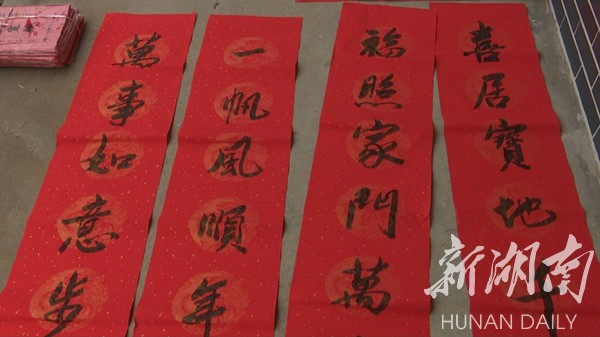 喜居寶地千
福照家門萬
一帆風順年
萬事如意步
新湖南
HUNAN DAILY